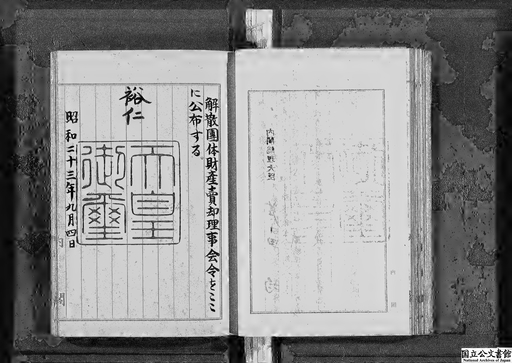 解散團体財産賣却理事会令をここ
に公布する
裕仁
天皇
御璽
昭和二十三年九月四日
内閣
内閣総理大臣
国立公文書館
National Archives of Japan